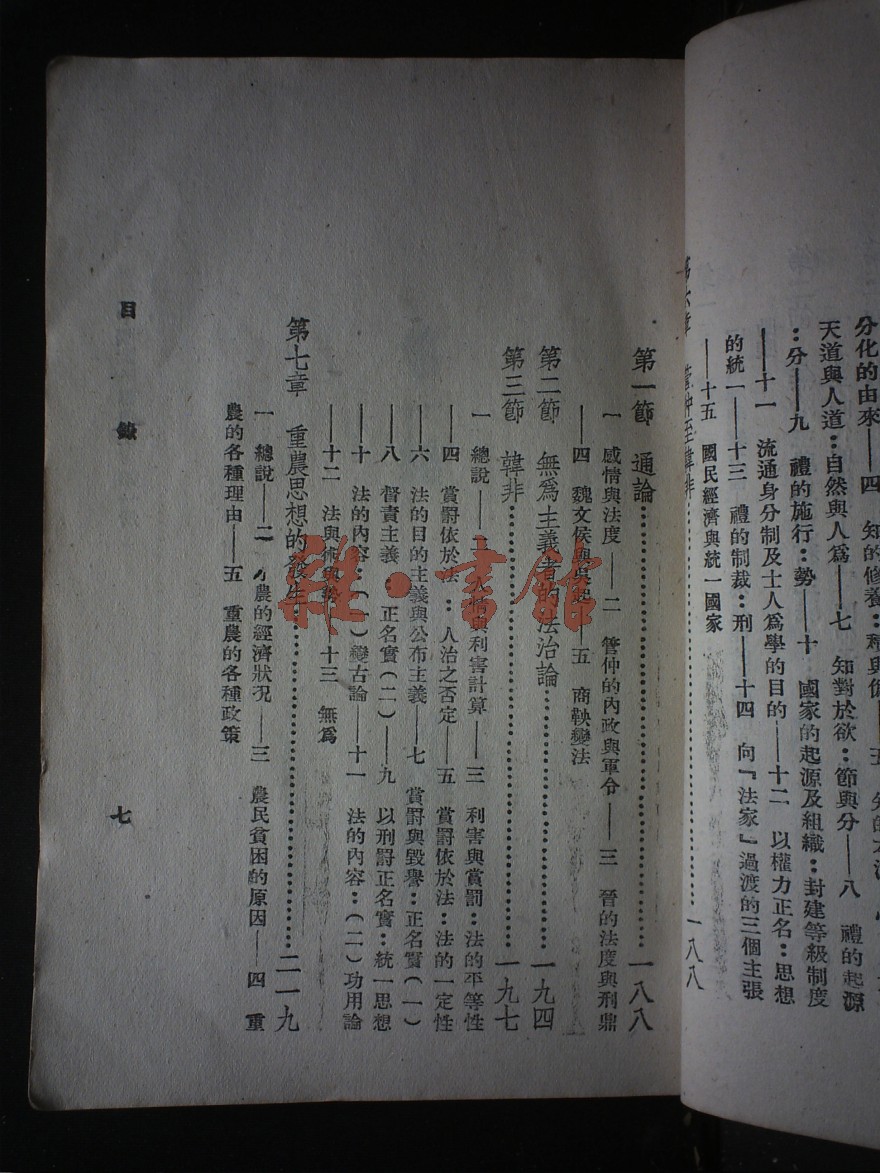 分化的由來——四　知的修養：
天道與人道：自然與人爲——七　知對於欲：節與分——八　禮的起源
：分——九　禮的施行：勢——十　國家的起源及組織：封建等級制度
——十一　流通身分制及士人爲學的目的——十二　以權力正名：思想
的統一——十三　禮的制裁：刑——十四　向『法家』過渡的三個主張
——十五　國民經濟與統一國家
第六章　管仲至韓非……一八八
第一節　通論……一八八
一　感情與法度——二　管仲的內政與軍令——三　晉的法度與刑鼎
——四　魏文侯與吳起——五　商鞅變法
第二節　無爲主義者的法治論……一九四
第三節　韓非……一九七
一　總說——二　人情與利害計算——三　利害與賞罰：法的平等性
——四　賞罰依於法：人治之否定——五　賞罰依於法：法的一定性
——六　法的目的主義與公布主義——七　賞罰與毀譽：正名實（一）
——八　督責主義：正名實（二）——九　以刑罰正名實：統一思想
——十　法的內容：（一）變古論——十一　法的內容：（二）功用論
——十二　法與術與勢——十三　無爲
第七章　重農思想的發生……二一九
一　總說——二　農的經濟狀況——三　農民貧困的原因——四　重
農的各種理由——五　重農的各種政策
目　錄　七
雜·書館